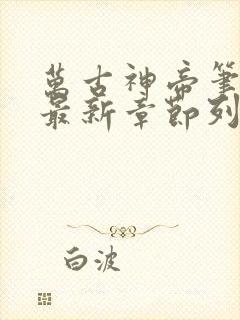 萬古神帝筆
最新章節列
白波